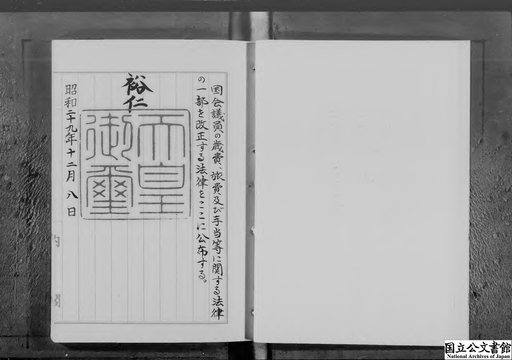 国会議員の歳費、旅費及び手当等に関する法律
の一部を改正する法律をここに公布する。
裕仁
天皇
御璽
昭和二十九年十二月八日
内閣
国立公文書館
National Archives of Japan